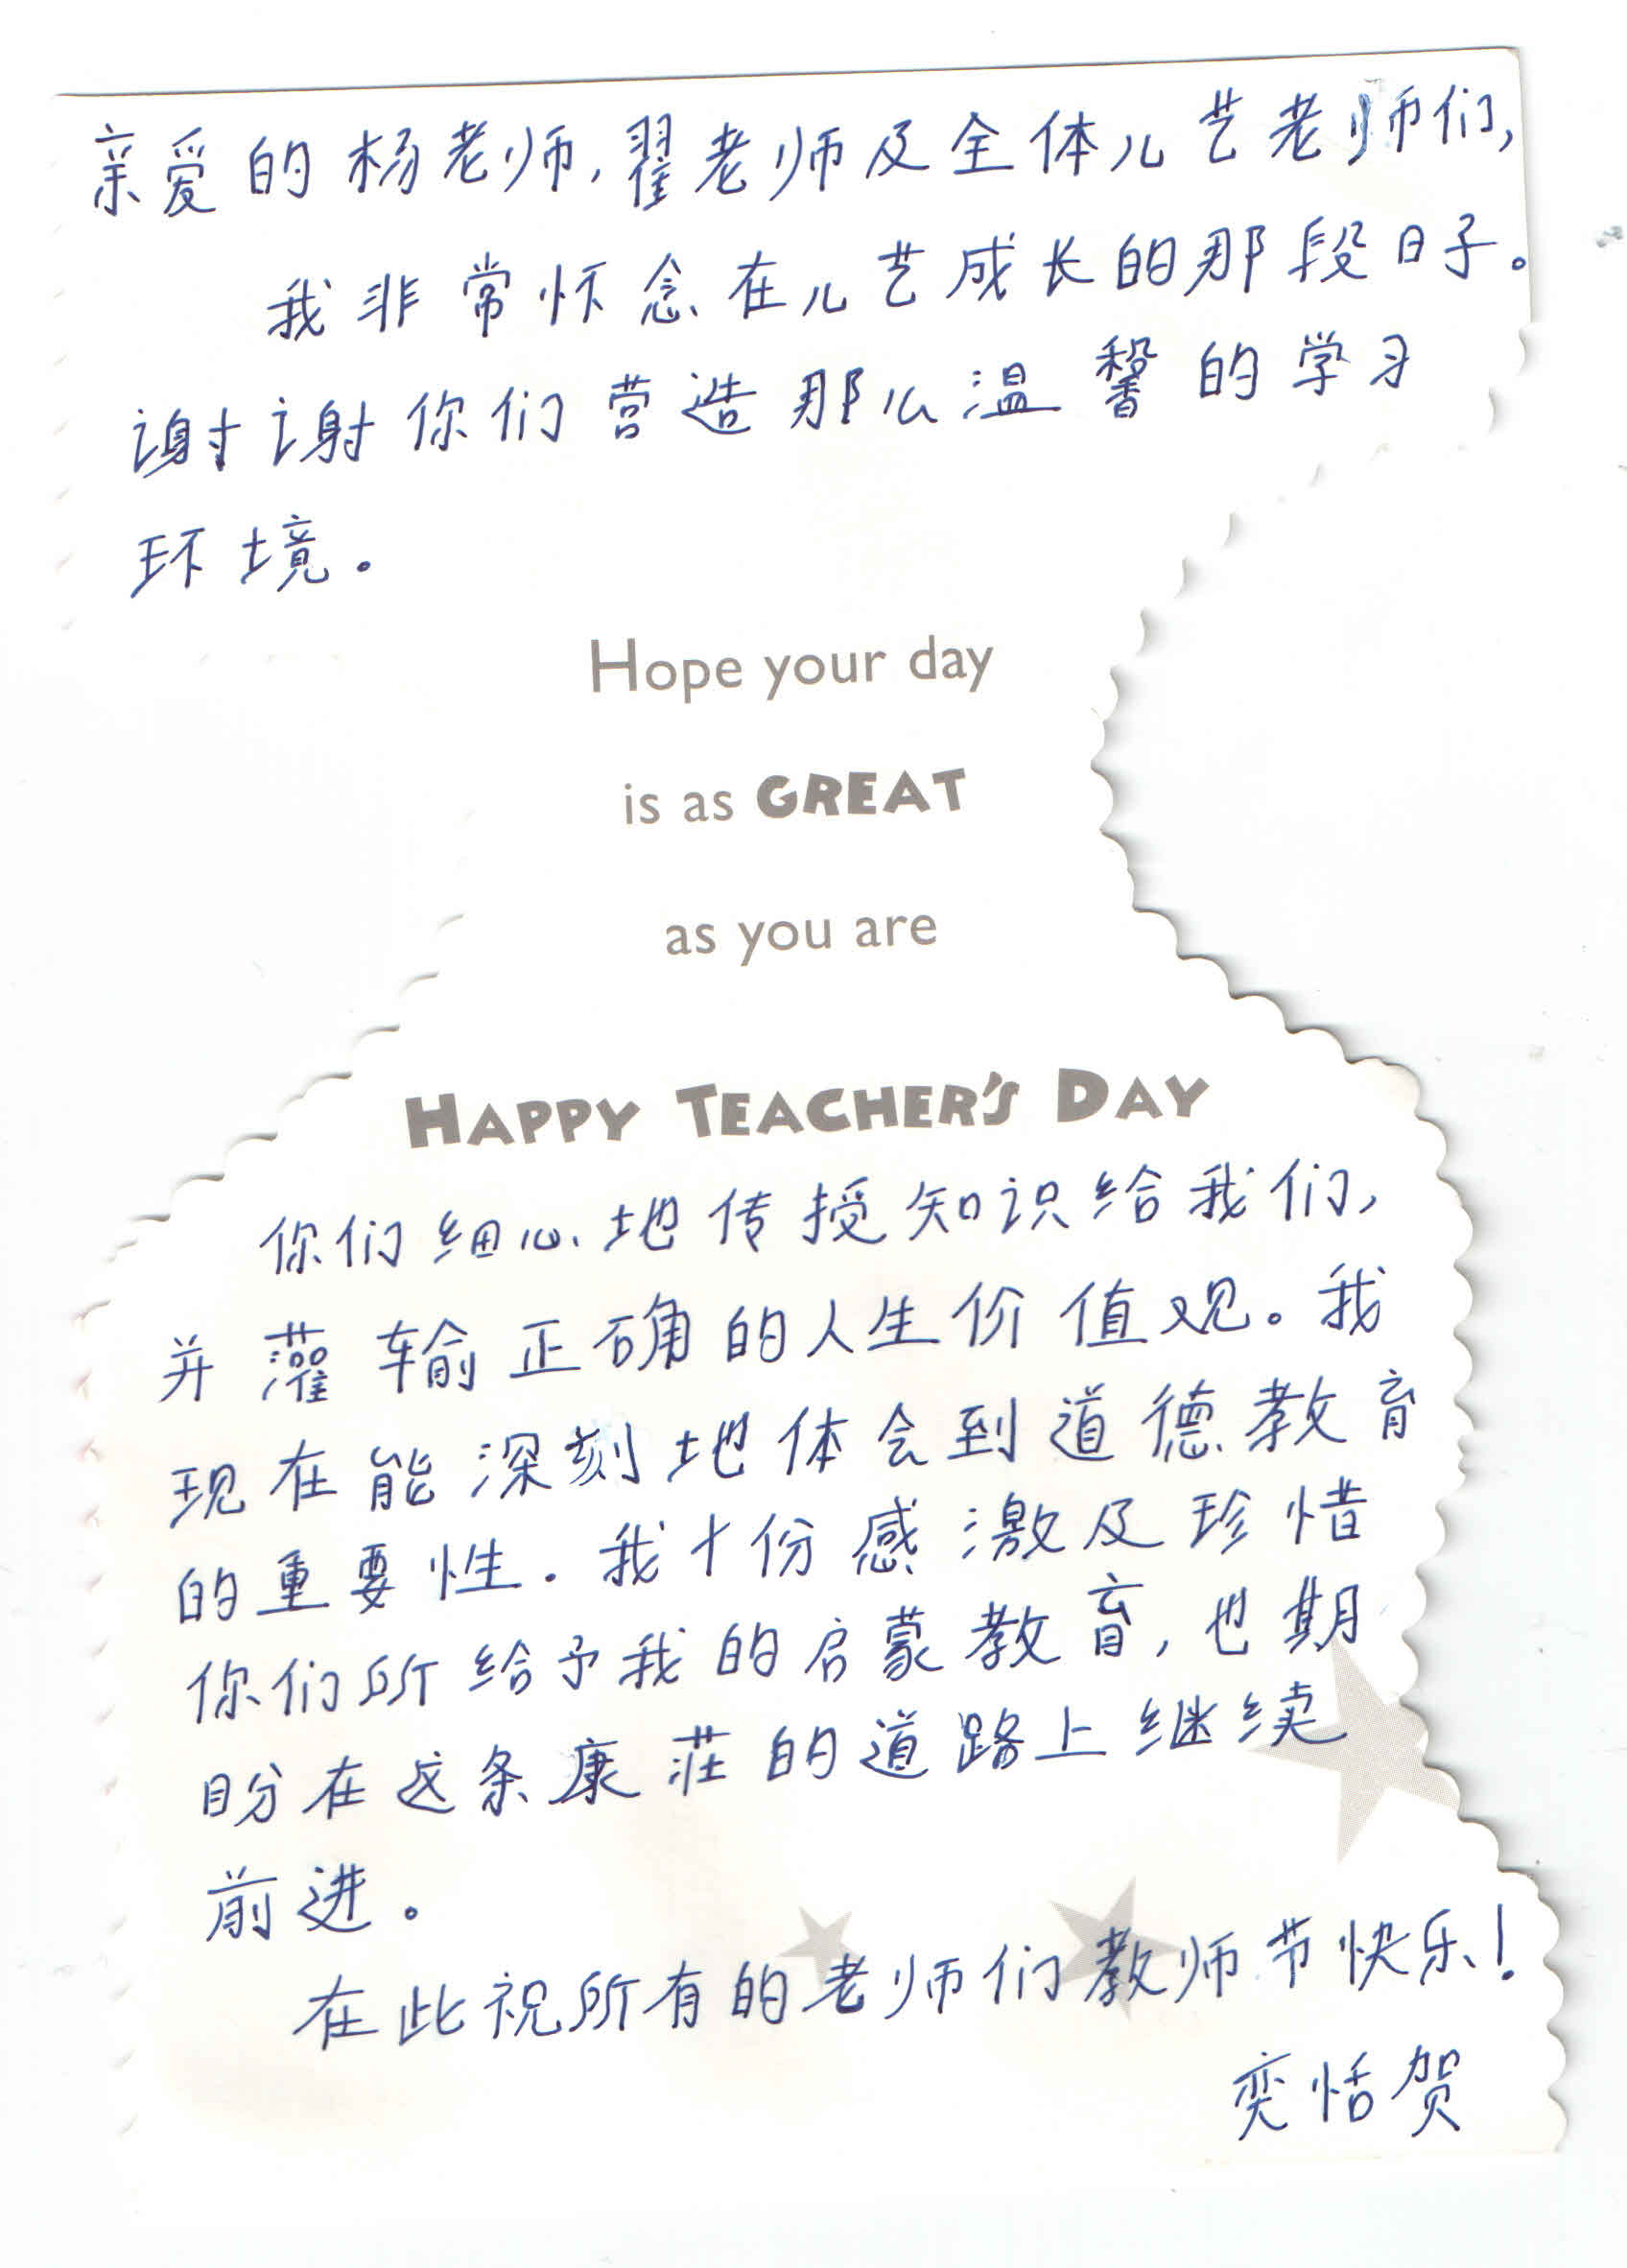 亲爱的杨老师,翟老师及全体儿艺老师们,
我非常怀念在儿艺成长的那段日子。
谢谢你们营造那么温馨的学习
环境。
Hope your day
is as GREAT
as you are
HAPPY TEACHER'S DAY
你们细心地传授知识给我们,
并灌输正确的人生价值观。我
现在能深刻地体会到道德教育
的重要性.我十份感激及珍惜
你们所给予我的启蒙教育,也期
盼在这条康莊的道路上继续
前进。
在此祝所有的老师们教师节快乐!
奕恬贺